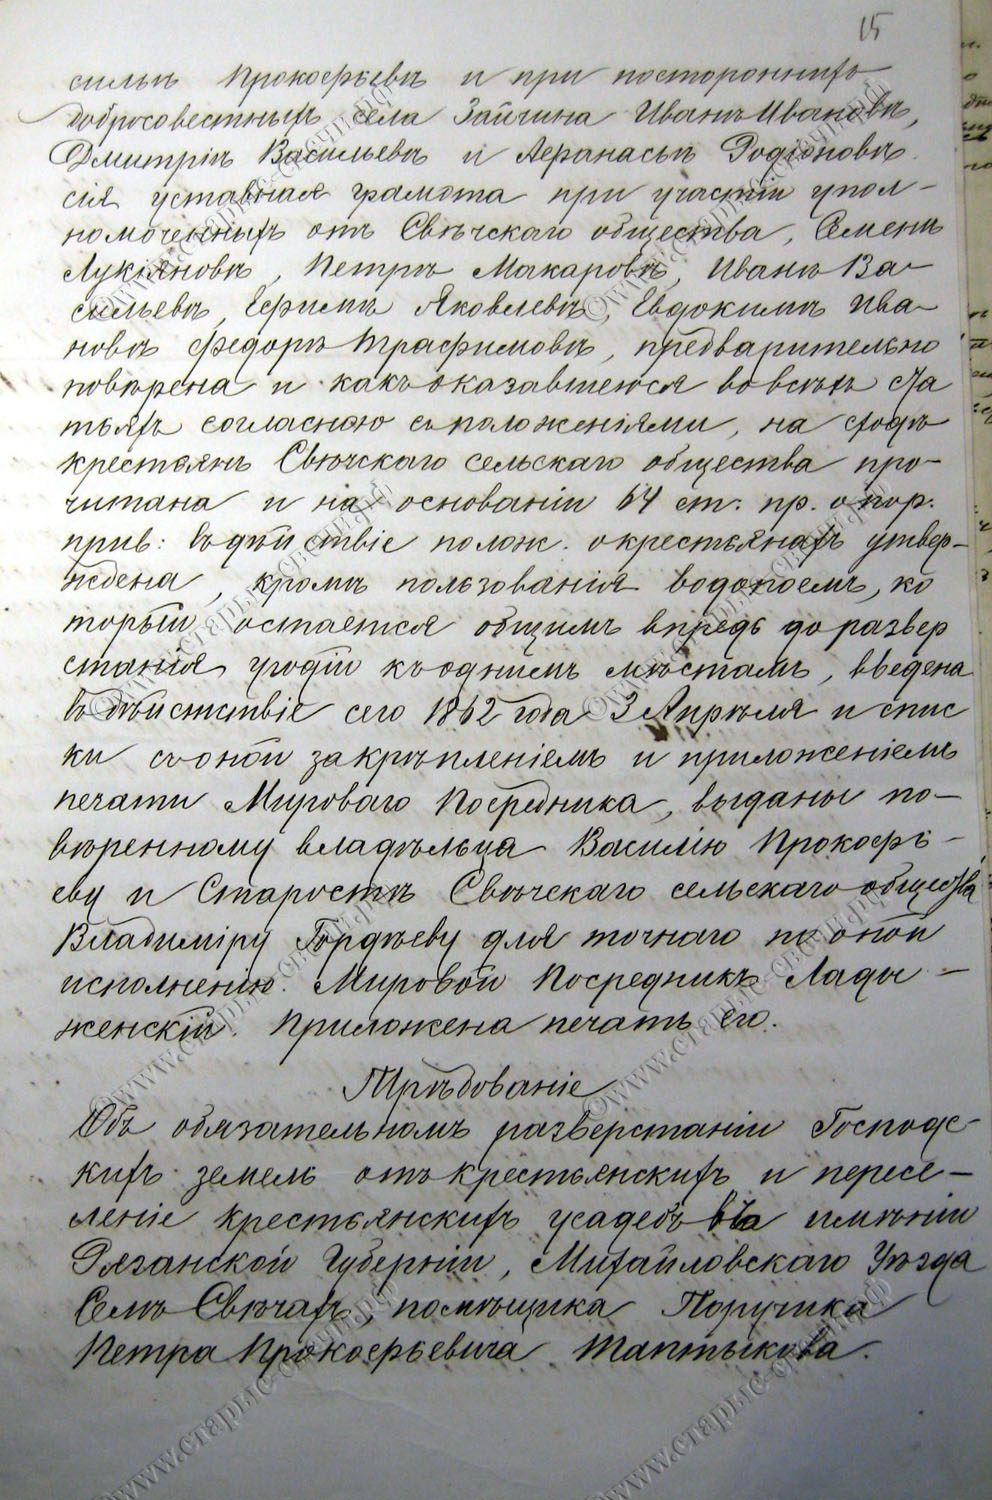 15
сильѣ Прокофьевѣ и при постороннихъ
добросовестныхъ села Зайчина Иванѣ Ивановѣ,
Дмитріѣ Васильевѣ и Афанасьѣ Родіоновѣ
сія уставная грамота при участіи упол-
номоченныхъ отъ Свѣчскаго общества, Семенѣ
Лукіяновѣ, Петрѣ Макаровѣ, Иванѣ Ва-
сильевѣ, Ефимѣ Яковлевѣ, Евдокимѣ Ива-
новѣ Федорѣ Трафимовѣ, предварительно
повѣрена и какъ оказавшеюся во всѣхъ ста
тьяхъ согласною съ положеніями, на сходѣ
крестьянъ Свѣчскаго сельскаго общества про-
читана и на основаніи 64 ст. пр. о пор.
прив: въ дѣйствіе полож. о крестьянахъ утвер-
ждена, кромѣ пользованія водопоемъ, ко
торый остается общимъ впредь до развер
станія угодій къ однимъ мѣстамъ, введена
въ дѣйстствіе сего 1862 года 3 Апрѣля и спис
ки съ оной за крѣпленіемъ и приложеніемъ
печати Мироваго Посредника, выданы по-
вѣренному владѣльца Василію Прокофь-
еву и Старостѣ Свѣчскаго сельскаго общества
Владиміру Гордѣеву для точнаго по оной
исполненію. Мировой Посредникъ Лады-
женскій. Приложена печать его.
Трѣбованіе
Объ обязательномъ разверстаніи Господс-
кихъ земель отъ крестьянскихъ и пересе-
леніе крестьянскихъ усадебъ въ имѣніи
Рязанской Губерніи, Михайловскаго Уѣзда
Селѣ Свѣчахъ, помѣщика Поручика
Петра Прокофьевича Таптыкова.
©www.старые-свечи.рф